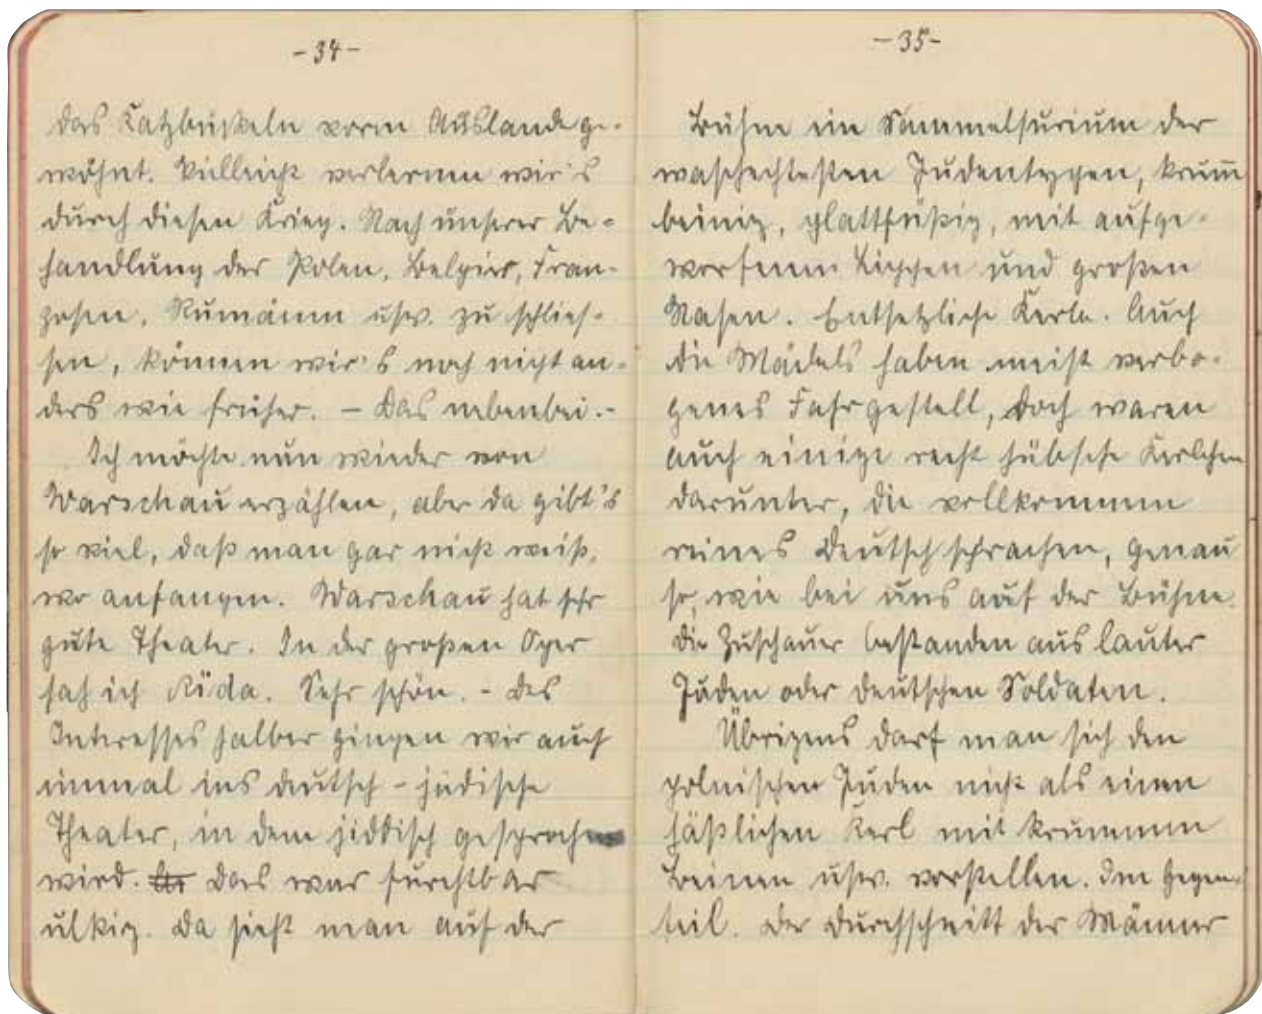 -34-
das Katzbuckeln vorm Auslande ge-
wöhnt. Vielleicht verlernen wir's
durch diesen Krieg. Nach unserer Be-
handlung der Polen, Belgier, Fran-
zosen, Rumänen usw. zu schlies-
sen, können wir's noch nicht an-
ders wie früher. – Das nebenbei. –
Ich möchte nun wieder von
Warschau erzählen, aber da gibt's
so viel, daß man gar nicht weiß,
wo anfangen. Warschau hat sehr
gute Theater. In der großen Oper
sah ich Aida. Sehr schön. – Des
Interesses halber gingen wir auch
einmal ins deutsch-jüdische
Theater, in dem jiddisch gesprochen
wird. Das war furchtbar
ulkig. Da sieht man auf der
-35-
Bühne ein Sammelsurium der
waschechtesten Judentypen, krumm
beinig, plattfüßig, mit aufge-
worfenen Lippen und großen
Nasen. Entsetzliche Kerle. Auch
die Mädels haben meist verbo-
genes Fahrgestell, doch waren
auch einige recht hübsche Kerlchen
darunter, die vollkommen
reines Deutsch sprachen, genau
so, wie bei uns auf der Bühne.
Die Zuschauer bestanden aus lauter
Juden oder deutschen Soldaten.
Übrigens darf man sich den
polnischen Juden nicht als einen
häßlichen Kerl mit krummen
Beinen usw. vorstellen. Im Gegen-
teil. Der Durchschnitt der Männer